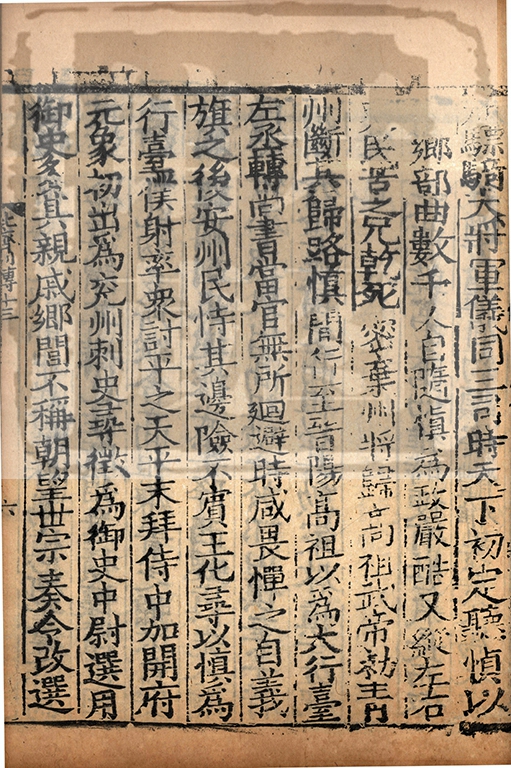 驃騎大將軍儀同三司時天下初定聽慎以
鄉部曲數千人自隨慎爲政嚴酷又縱左右
民苦之兄乾死密棄州將歸高祖武帝勑青
州斷其歸路慎間行至晉陽高祖以爲大行臺
左丞轉尚書當官無所迴避時咸畏憚之自義
旗之後安州民恃其邊險不賓王化尋以慎爲
行臺僕射率衆討平之天平末拜侍中加開府
元象初出爲兖州刺史尋徵爲御史中尉選用
御史多其親戚鄉閭不稱朝望世宗奏令改選
傳十三
六